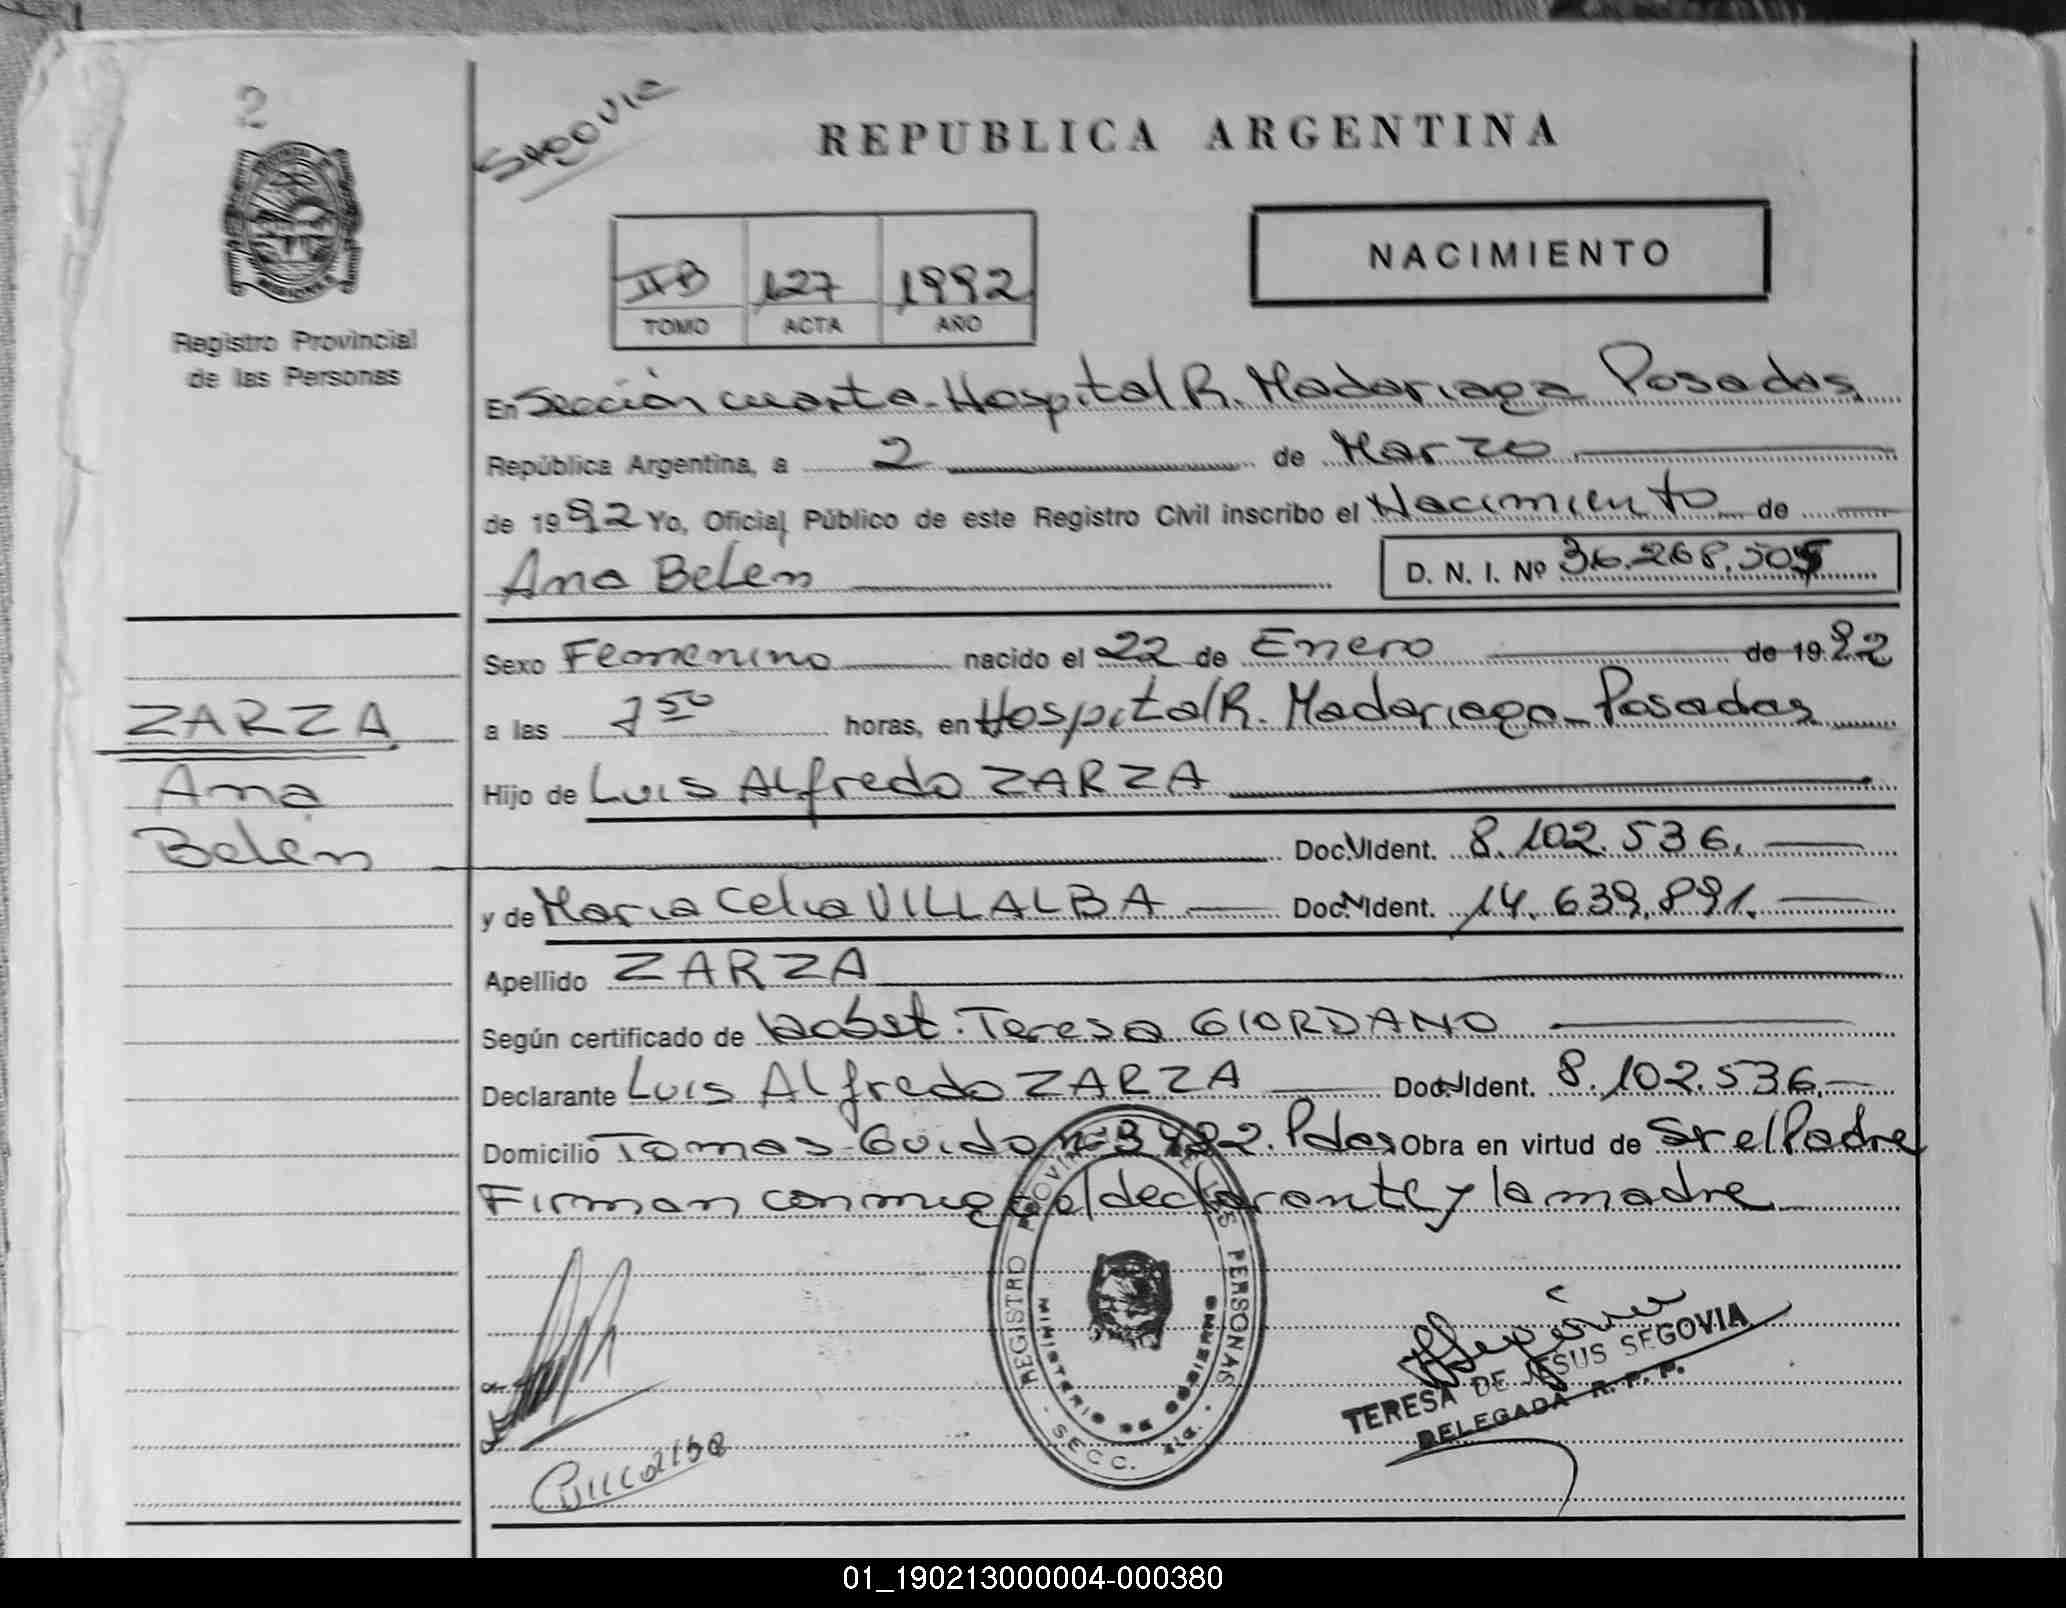 2
Segovia
REPUBLICA ARGENTINA
NACIMIENTO
127 1992
TOMO ACTA AÑO
Registro Provincial
de las Personas
En Sección cuarta - Hospital R. Madariaga Posadas
República Argentina, a 2 de Marzo
de 1992 Yo, Oficial Público de este Registro Civil inscribo el Nacimiento de
Ana Belen D. N. I. Nº 36.268.505
Sexo Femenino nacido el 22 de Enero de 1992
a las 7 50 horas, en Hospital R. Madariaga - Posadas
ZARZA
Ana
Belén
Hijo de Luis Alfredo ZARZA
Doc. Ident. 8.102.536.
y de Maria Celia VILLALBA Doc. Ident. 14.639.891.
Apellido ZARZA
Según certificado de Teresa GIORDANO
Declarante Luis Alfredo ZARZA Doc. Ident. 8.102.536.
Domicilio Tomas Guido Pdas Obra en virtud de Sr el Padre
Firman conmigo el declarante y la madre
REGISTRO PROVINCIAL DE LAS PERSONAS
MINISTERIO DE GOBIERNO
SECC.
TERESA DE JESUS SEGOVIA
DELEGADA R. P. P.
01_190213000004-000380